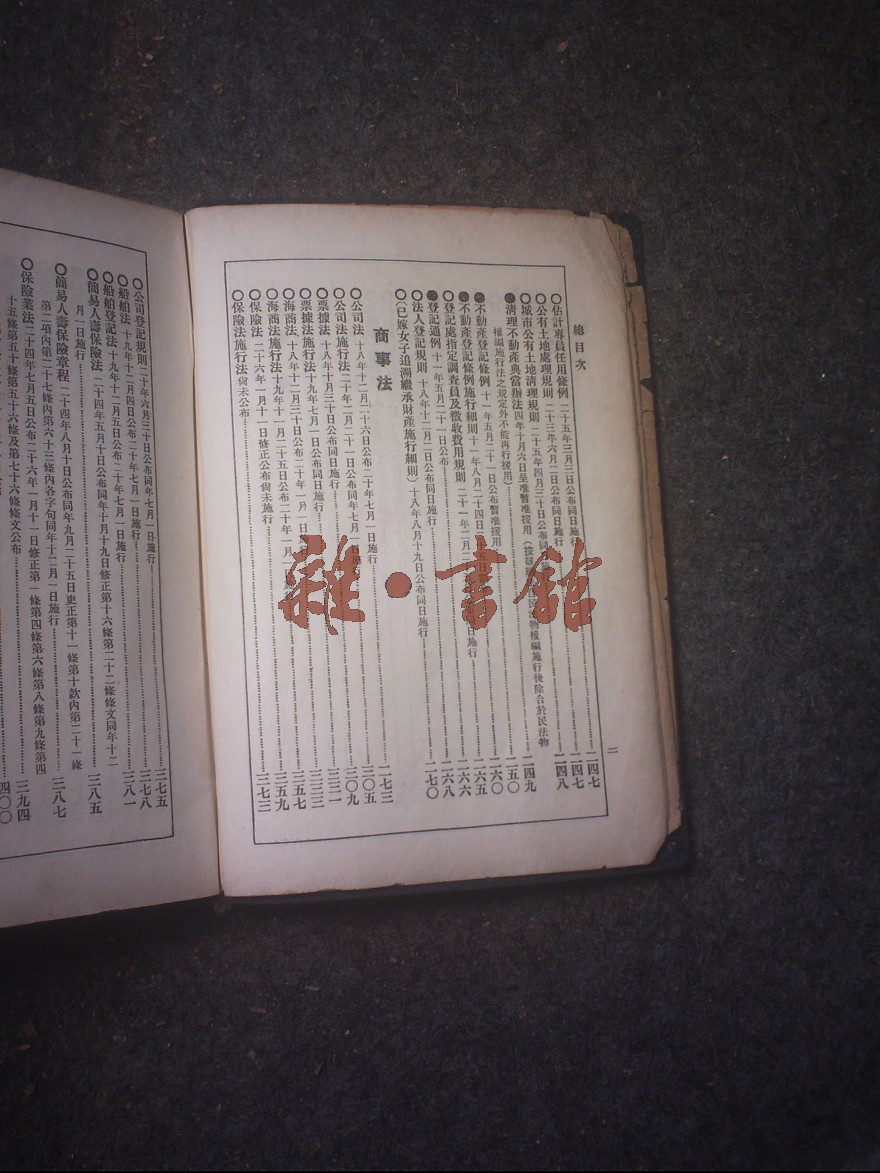 總目次
二
〇估計專員任用條例 二十五年三月三日公布同日施行 一四七
〇公有土地處理規則 二十三年六月二日公布同日施行 一四七
〇城市公有土地清理規則 二十五年四月三十日公布同日 一四八
●清理不動產典當辦法 四年十月六日呈准暫准援用(按該 民法物權編施行後除合於民法物
權編施行法之規定外不能再行援用) 一四九
●不動產登記條例 十一年五月二十一日公布暫准援用 一五〇
●不動產登記條例施行細則 十一年八月二十四日 一六〇
〇登記處指定調查員及徵收費用規則 二十一年二月二 日施行 一六五
●登記通例 十一年五月二十一日公布 一六六
〇法人登記規則 十八年十二月二日公布同日施行 一六八
〇(已嫁女子追溯繼承財產施行細則) 十八年八月十九日公布同日施行 一七〇
商事法 一七三
〇公司法 十八年十二月二十六日公布二十年七月一日施行 三〇五
〇公司法施行法 二十年二月二十一日公布同年七月一日施行 三〇九
〇票據法 十八年十月三十日公布同日施行 三三一
〇票據法施行法 十九年七月一日公布同日施行 三三三
〇海商法 十八年十二月三十日公布二十年一月一日施行 三五七
〇海商法施行法 十九年十一月二十五日公布二十年一月一日 三五九
〇保險法 二十六年一月十一日修正公布尚未施行 三七二
〇保險法施行法 尚未公布 三七三
〇公司登記規則 二十年六月三十日公布同年七月一日施行 三七五
〇船舶法 十九年十二月四日公布二十年七月一日施行 三七八
〇船舶登記法 十九年十二月五日公布二十年七月一日施行 三八一
〇簡易人壽保險法 二十四年五月十日公布同年十月十九日修正第十六條第二十二條條文同年十二
月一日施行 三八五
〇簡易人壽保險章程 二十四年八月十日公布同年九月二十五日更正第十一條第十款內第二十一條
第二項內第二十七條內第六十三條內各字句同年十二月一日施行 三八七
〇保險業法 二十四年七月五日公布二十六年一月十一日修正第一條第四條第六條第八條第九條第四
十五條第五十條第五十六條及第七十六條條文公布 三九四
四〇〇
雜·書館